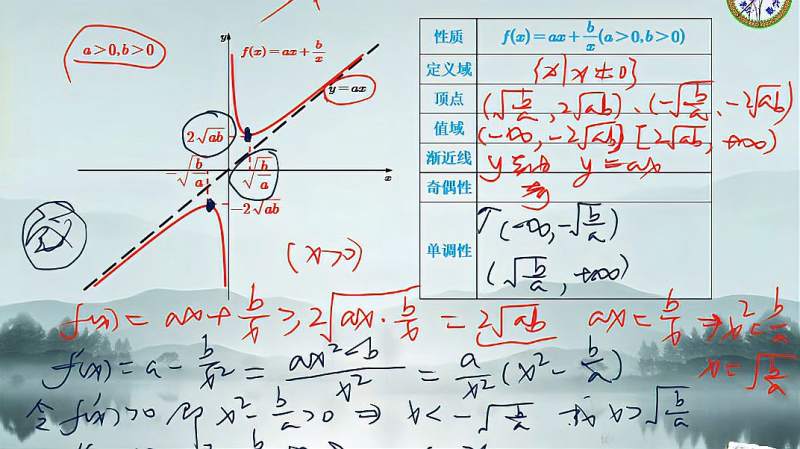 a>0,b>0
y
f(x)=ax+b/x
y=ax
2√ab
-√(b/a)
√(b/a)
x
-2√ab
性质 f(x)=ax+b/x(a>0,b>0)
定义域 {x|x≠0}
顶点 (√(b/a),2√ab)、(-√(b/a),-2√ab)
值域 (-∞,-2√ab] [2√ab,+∞)
渐近线 y轴 y=ax
奇偶性 奇
单调性 ↑(-∞,-√(b/a))
(√(b/a),+∞)
(x>0)
f(x)=ax+b/x≥2√(ax·b/x)=2√ab ax=b/x ⇒x²=b/a
x=√(b/a)
f'(x)=a-b/x²=(ax²-b)/x²=a/x²(x²-b/a)
令f'(x)>0 即x²-b/a>0 ⇒ x<-√(b/a) 或x>√(b/a)